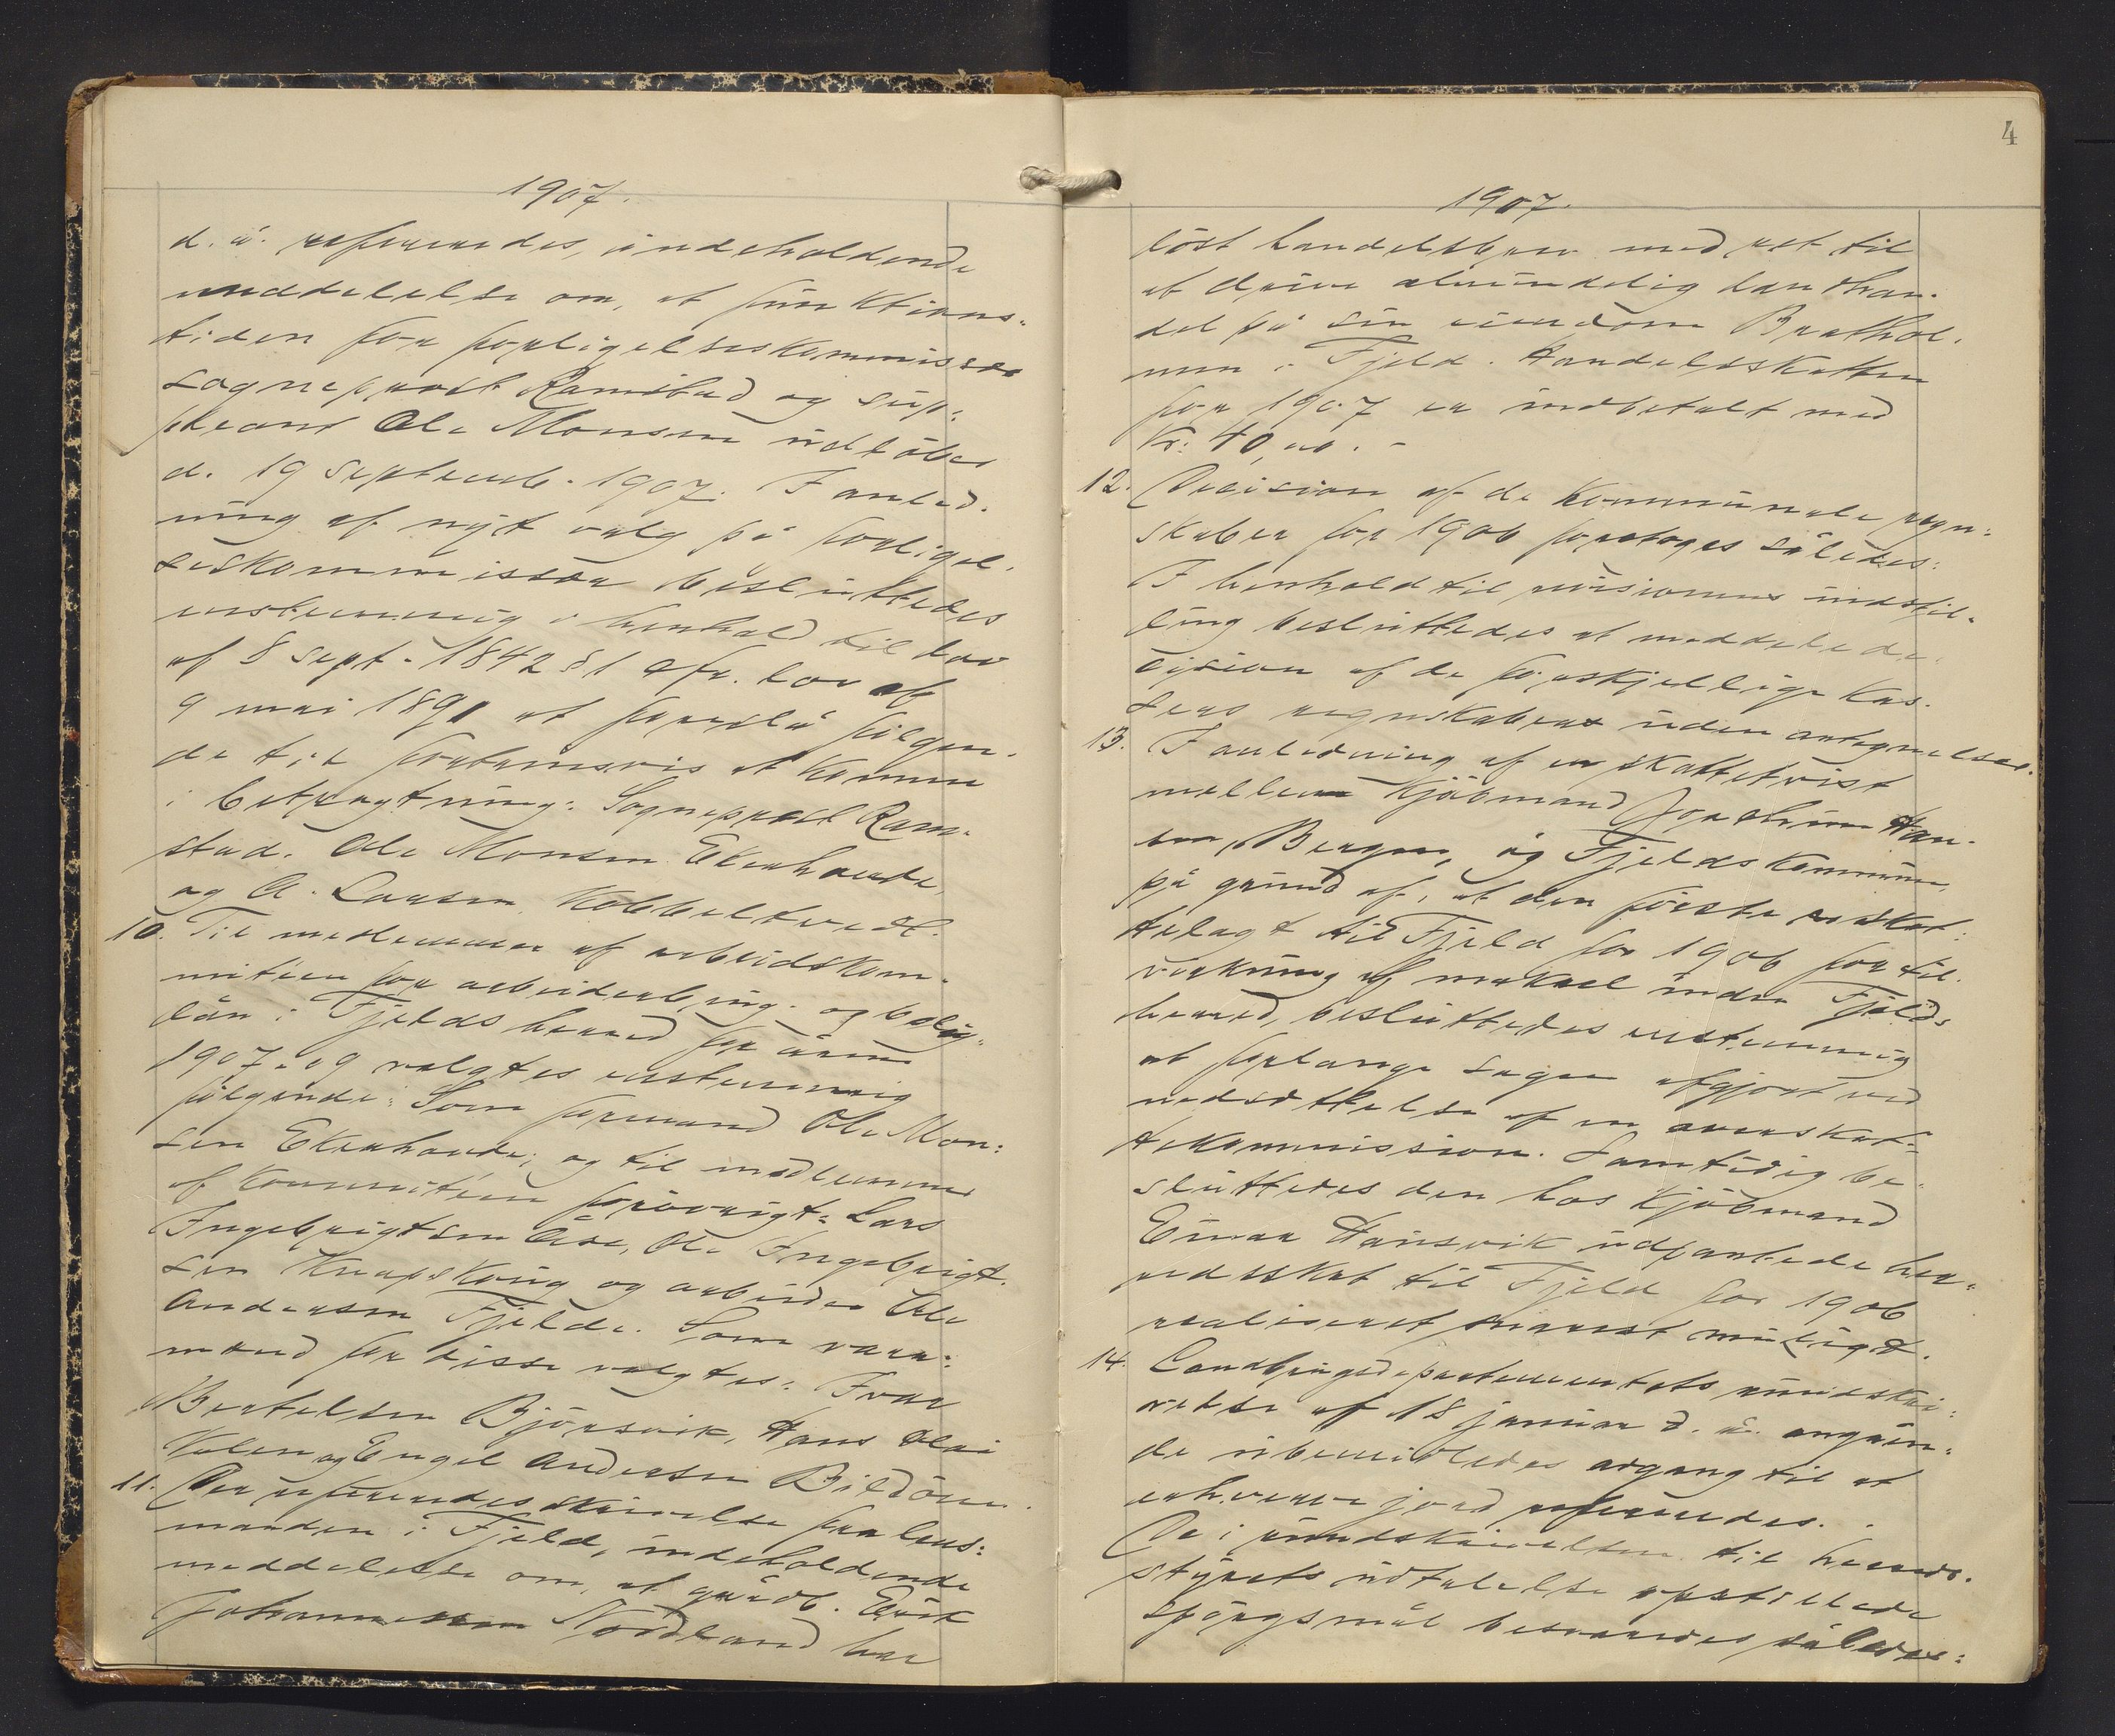 1907.
d. å. refereredes, indeholdende
meddelelse om, at funktions-
tiden for forligelseskommissær
sogneprest Ramstad og sup-
pleant Ole Monsen udløber
d. 19 septemb. 1907. I anled-
ning af nyt valg på forligel-
seskommissær besluttedes
enstemmig i henhold til lov
af 8 sept. 1842 § 1 cfr. lov af
9 mai 1891 at foreslå følgen-
de til fortrinsvis at komme
i betragtning: Sogneprest Ram-
stad. Ole Monsen Ekerhovde,
og A. Larsen Kobbeltvedt.
10. Til medlemmer af arbeidskom-
miteen for arbeiderbrug- og bolig-
lån i Fjelds herred for årene
1907-09 valgtes enstemmig
følgende: Som formand Ole Mon-
sen Ekerhovde; og til medlemmer
af kommiteen forøvrigt: Lars
Ingebrigtsen Åse, Ole Ingebrigt-
sen Knapskoug og arbeider Ole
Andersen Fjelde. Som vara-
mænd for disse valgtes: Ivar
Bertelsen Bjørsvik, Hans Olai
Kolen og Engel Andersen Bildøen.
11. Der refereredes skrivelse fra lens-
manden i Fjeld, indeholdende
meddelelse om, at gårdb. Erik
Johannessen Nordland har
4
1907.
løst handelsbrev med ret til
at drive almindelig landhan-
del på sin eiendom Brathol-
men i Fjeld. Handelsskatten
for 1907 er indbetalt med
Kr: 40,00. -
12. Decision af de kommunale regn-
skaber for 1906 foretoges således:
I henhold til revisionens indstil-
ling besluttedes at meddele de-
cision af de forskjellige kas-
sers regnskaber uden antegnelser.
13. I anledning af en skattetvist
mellem kjøbmand Joachim Han-
sen, Bergen, og Fjelds kommune,
på grund af, at den første er skat-
telagt til Fjeld for 1906 for til-
virkning af makrel inden Fjelds
herred, besluttedes enstemmig
at forlange sagen afgjort ved
nedsættelse af en overskat-
tekommission. Samtidig be-
sluttedes den hos kjøbmand
Einar Hausvik udpantede her-
redsskat til Fjeld for 1906
realiseret snarest muligt.
14. Landbrugsdepartementets rundskri-
velse af 18 januar d. å. angåen-
de ubemidledes adgang til at
erhverve jord refereredes.
De i rundskrivelsen til herreds-
styrets udtalelse opstillede
spørgsmål besvaredes således: